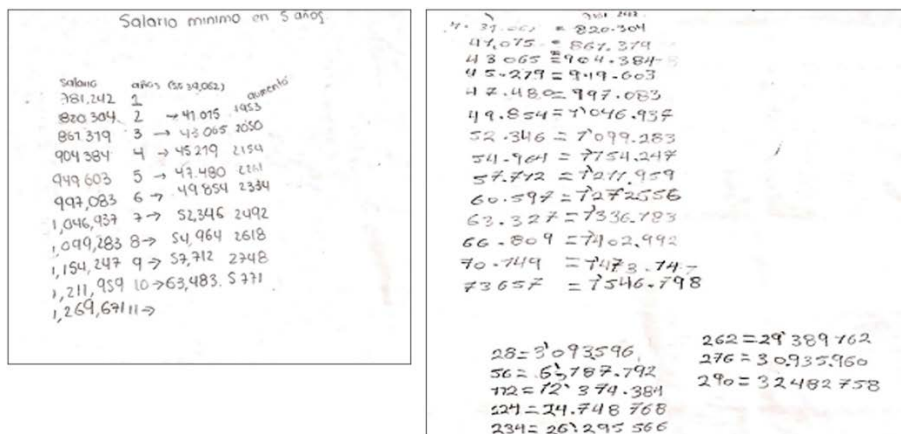 Salario minimo en 5 años
Salario años (5% 39,062) aumento
781,242 1
820.304 2 → 41.015 1953
861.319 3 → 43.065 2050
904384 4 → 45219 2154
949603 5 → 47.480 2261
997,083 6 → 49854 2334
1,046,937 7 → 52,346 2492
1,099,283 8 → 54,964 2618
1,154,247 9 → 57,712 2748
1,211,959 10 → 63,483. 5771
1,269,671 11 →
= 820.304
= 861.379
43065 = 904.384
45.279 = 949.603
47.480 = 997.083
49.854 = 1'046.937
52.346 = 1'099.283
54.964 = 1'154.247
57.712 = 1'211.959
60.597 = 1'272556
63.327 = 1'336.183
66.809 = 1'402.992
70.149 = 1'473.14
73657 = 1'546.798
28 = 3'093596
56 = 6'187.792
112 = 12'374.384
= 24.748 768
234 = 26'295 566
262 = 29'389162
276 = 30.935.960
290 = 32482758